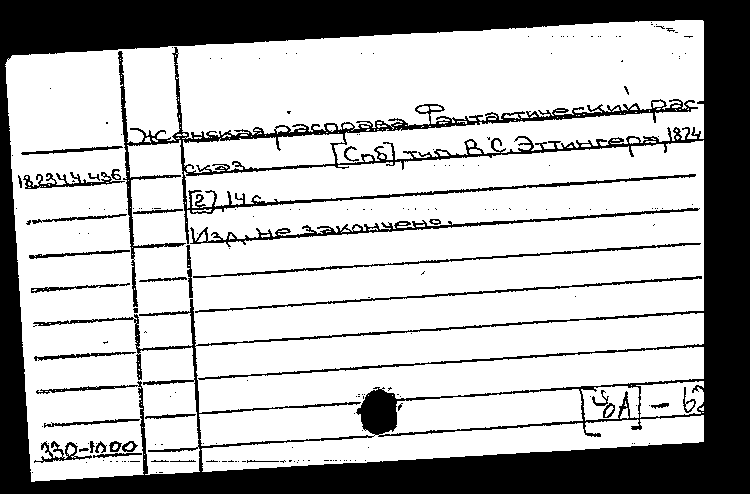 Женская расправа. Фантастический рас-
сказ. [Спб], тип. В.С. Эттингера, 1874
18.234.4.436.
[2], 14 с.
Изд. не закончено.
330-1000